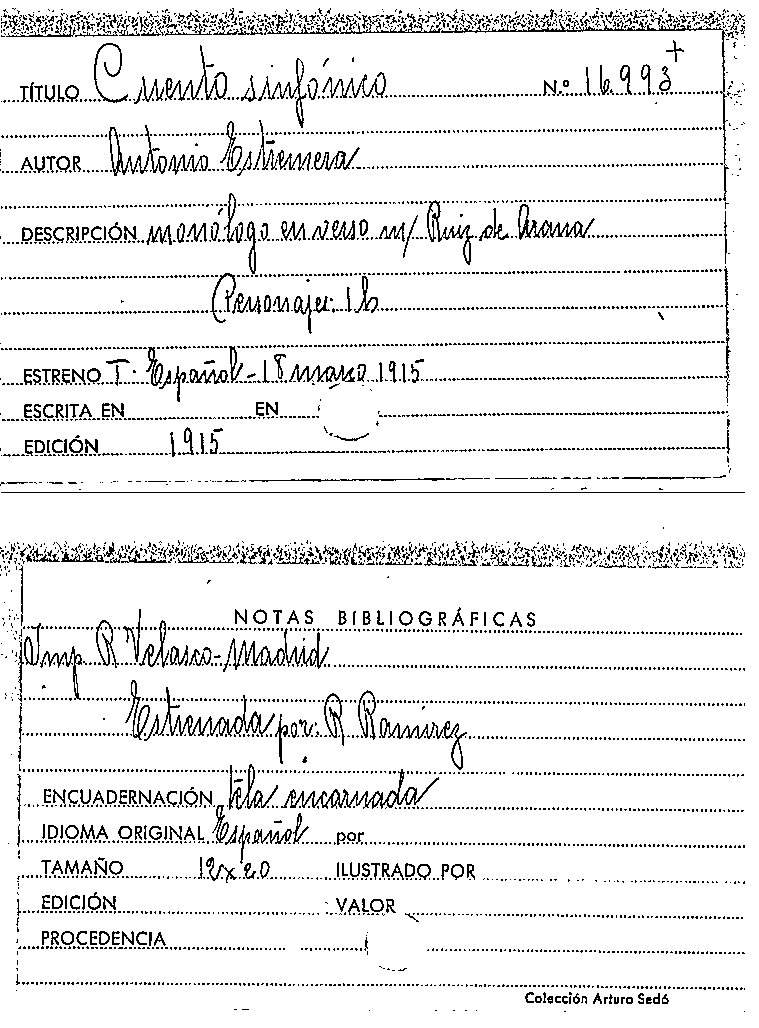 TÍTULO Cuento sinfónico N.º 16.993 +
AUTOR Antonio Estremera
DESCRIPCIÓN monólogo en verso m/ Ruiz de Arana
Personajes: 1 h
ESTRENO T. Español - 18 marzo 1915
ESCRITA EN EN
EDICIÓN 1915
NOTAS BIBLIOGRÁFICAS
Imp R Velasco - Madrid
Estrenada por: R Ramirez
ENCUADERNACIÓN tela encarnada
IDIOMA ORIGINAL Español por
TAMAÑO 12 x 20 ILUSTRADO POR
EDICIÓN VALOR
PROCEDENCIA
Colección Arturo Sedó